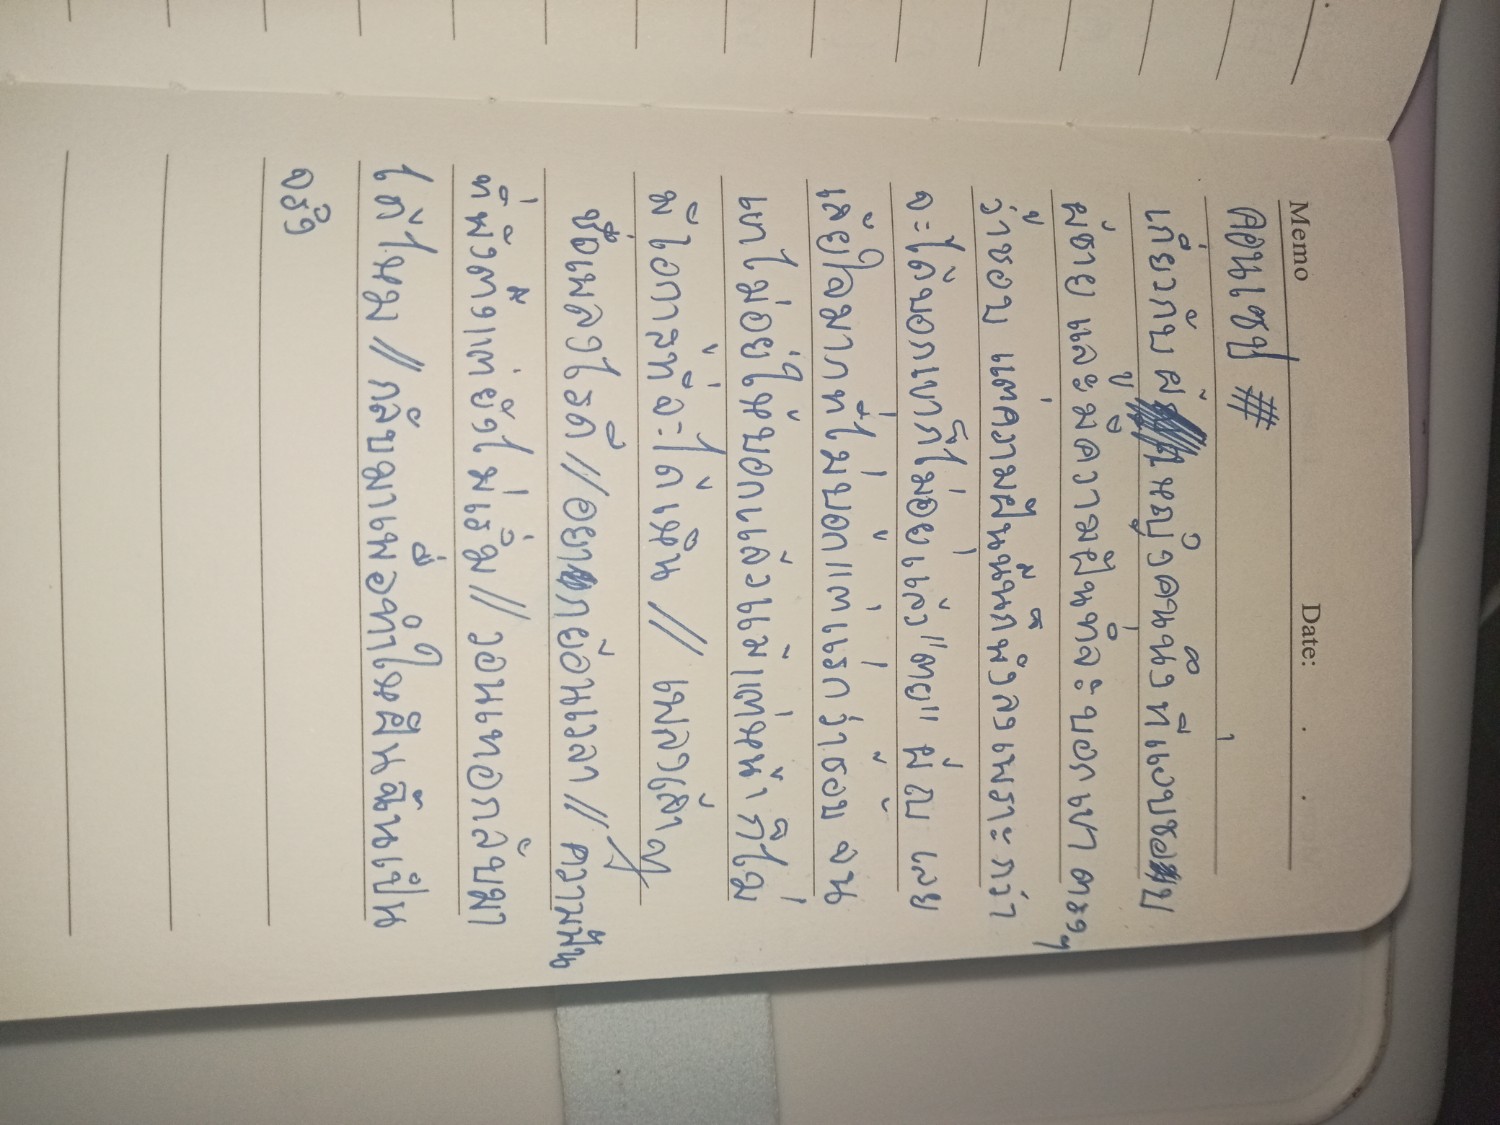 Memo Date: . .
คอนเซป #
เกี่ยวกับ ผู้หญิงคนนึง ที่แอบชอบ
ผู้ชาย และ มีความฝันที่จะบอกเขา ตรงๆ
ว่าชอบ แต่ความฝันนั้นก็พังลงเพราะกว่า
จะได้บอกเขาก็ไม่อยู่แล้ว "ตาย" ผู้ญ เลย
เสียใจมากที่ไม่บอกแต่แรกว่าชอบ จน
เขาไม่อยู่ให้บอกแล้วแม้แต่หน้า ก็ไม่
มีโอกาสที่จะได้เห็น // เพลงเศร้า
ชื่อเพลงไรดี // อยากย้อนเวลา // ความฝัน
ที่พังทั้งแต่ยังไม่เริ่ม // วอนเทอกลับมา
ได้ไหม // กลับมาเพื่อทำให้ฝันฉันเป็น
จริง